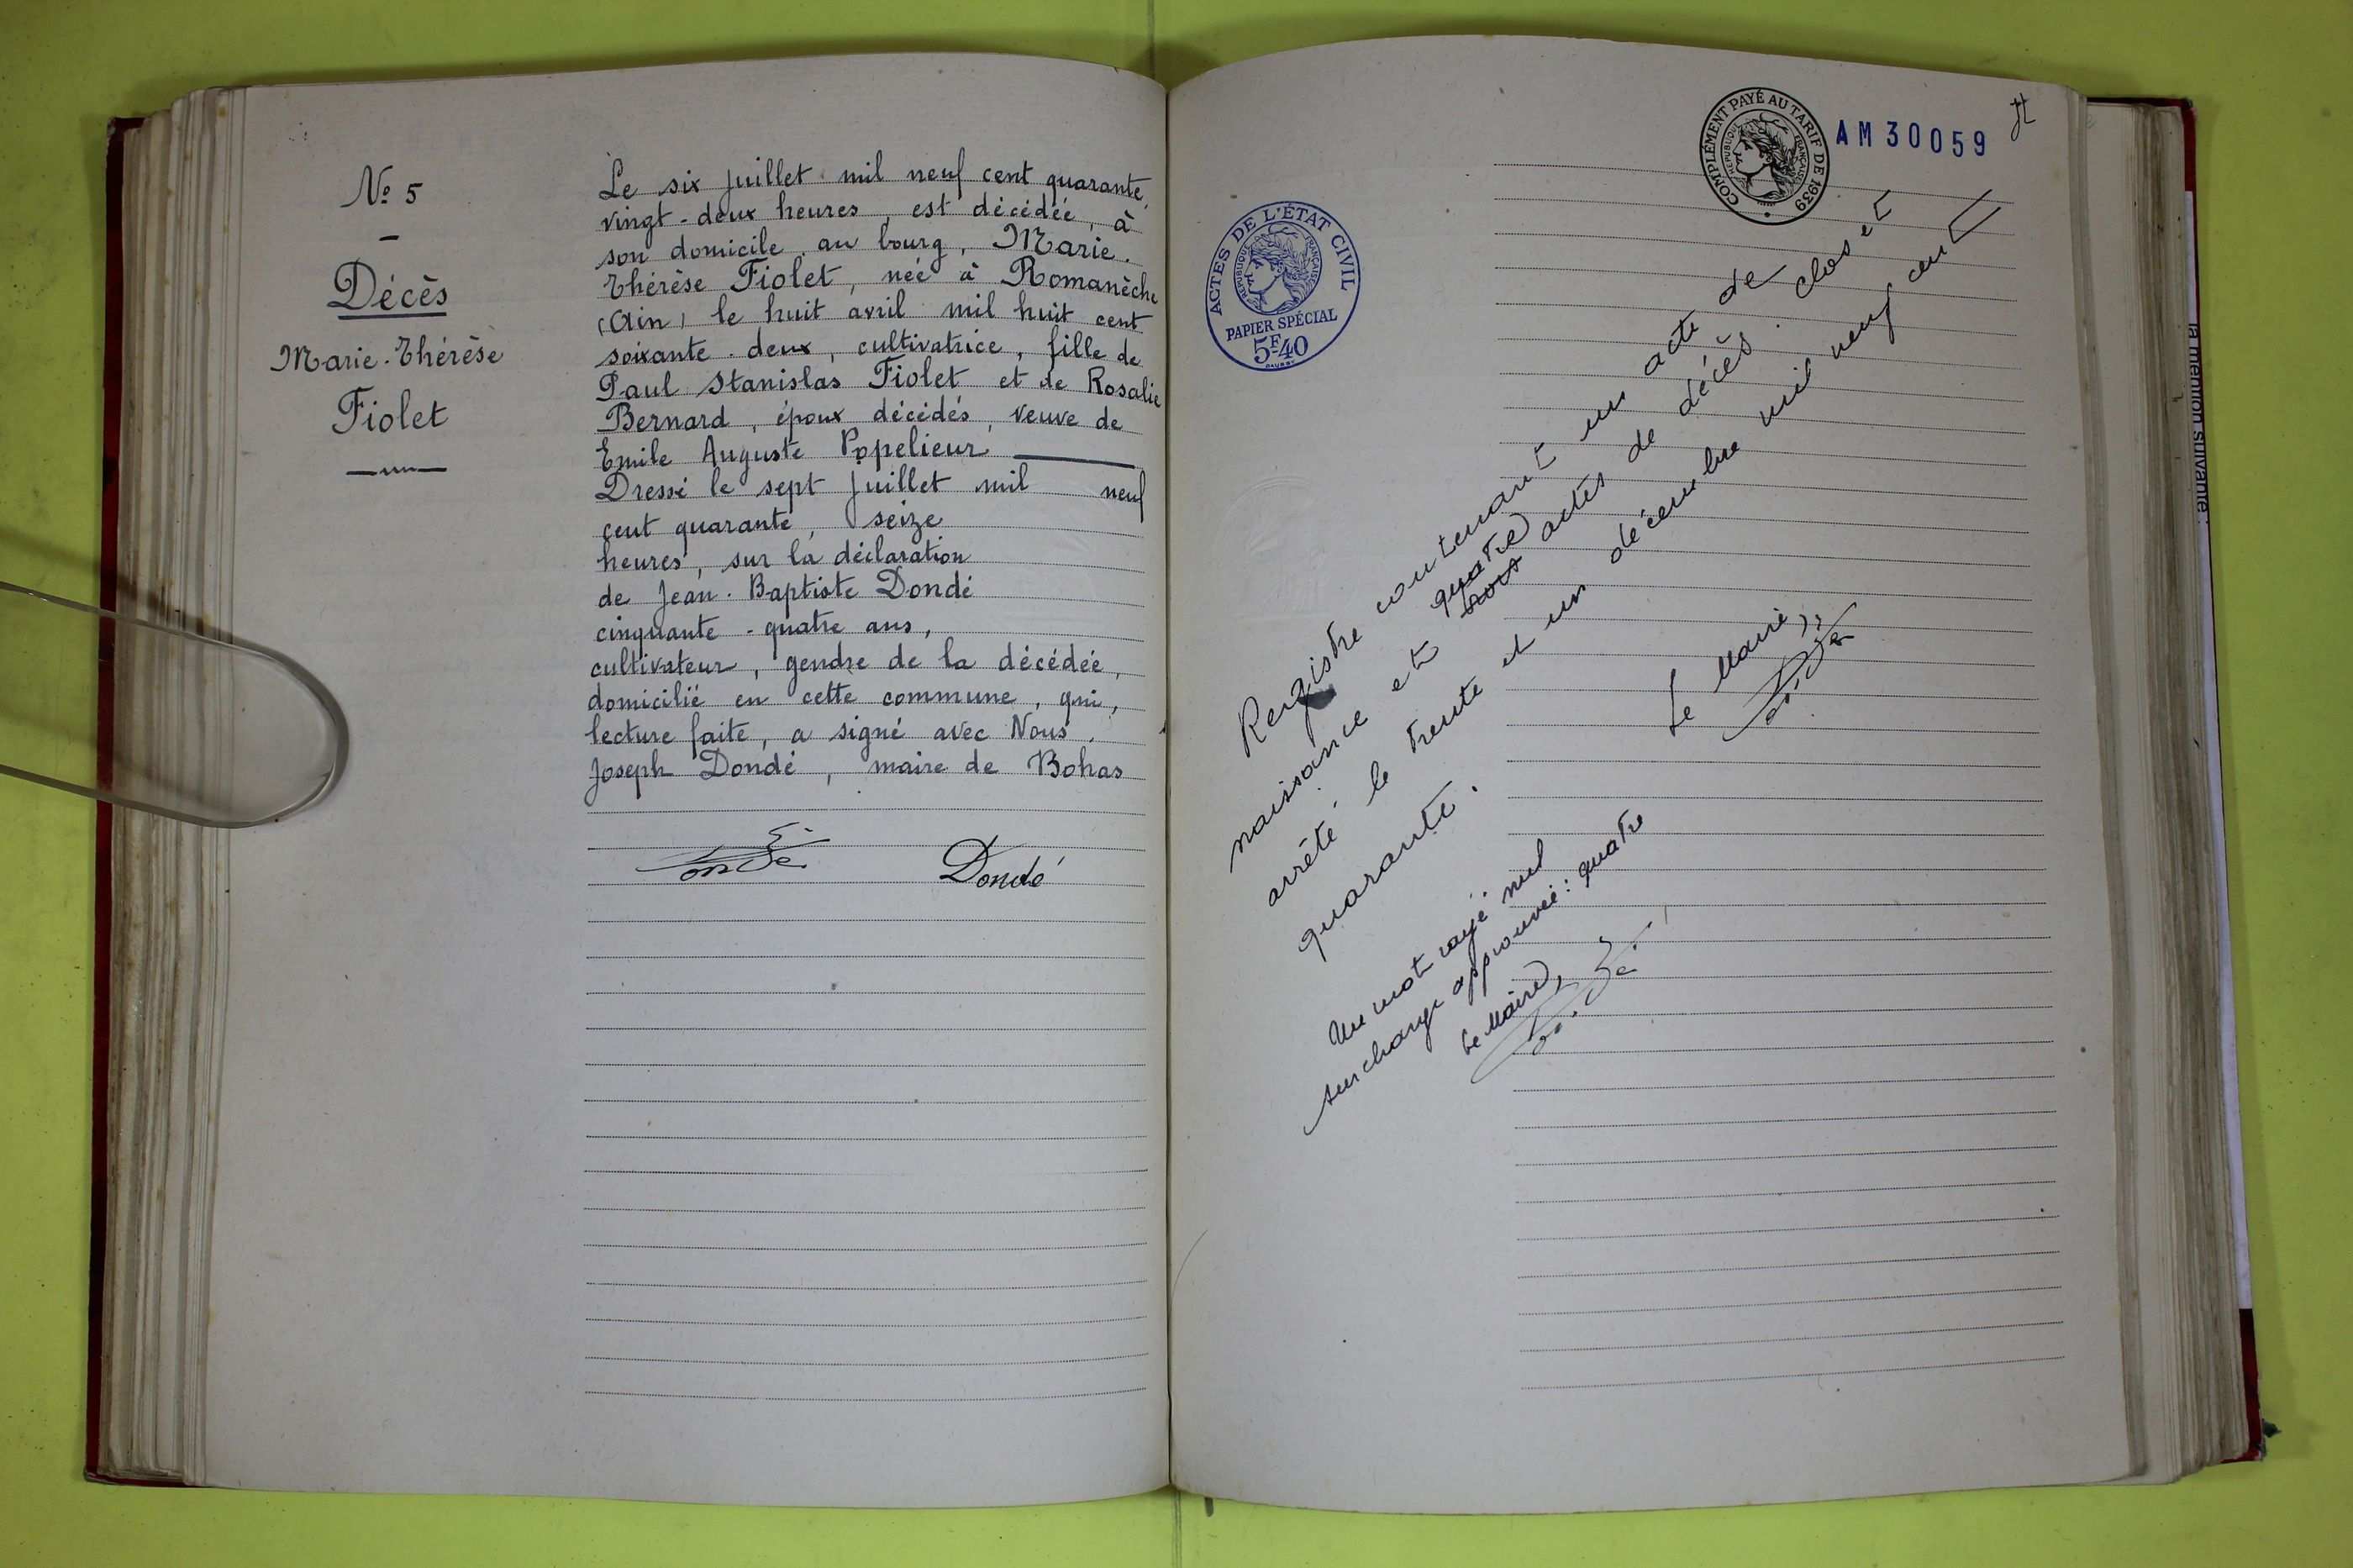 Nº 5
Décès
Marie-Thérèse
Fiolet
Le six juillet mil neuf cent quarante,
vingt-deux heures, est décédée, à
son domicile au bourg, Marie-
Thérèse Fiolet, née à Romanèche
(Ain) le huit avril mil huit cent
soixante-deux, cultivatrice, fille de
Paul Stanislas Fiolet et de Rosalie
Bernard, époux décédés, veuve de
Emile Auguste Popelieur
Dressé le sept juillet mil neuf
cent quarante, seize
heures, sur la déclaration
de Jean-Baptiste Dondé
cinquante-quatre ans,
cultivateur, gendre de la décédée,
domicilié en cette commune, qui,
lecture faite, a signé avec Nous,
Joseph Dondé, maire de Bohas
Dondé
ACTES DE L'ÉTAT CIVIL
RÉPUBLIQUE FRANÇAISE
PAPIER SPÉCIAL
5F40
COMPLÉMENT PAYÉ AU TARIF DE 1939
RÉPUBLIQUE FRANÇAISE
AM30059
Registre contenant un acte de
naissance et quatre actes de décès. clos et
arrêté le trente et un décembre mil neuf cent
quarante.
Le Maire,
Un mot rayé nul
surcharge approuvée : quatre
Le Maire,
la mention suivante :